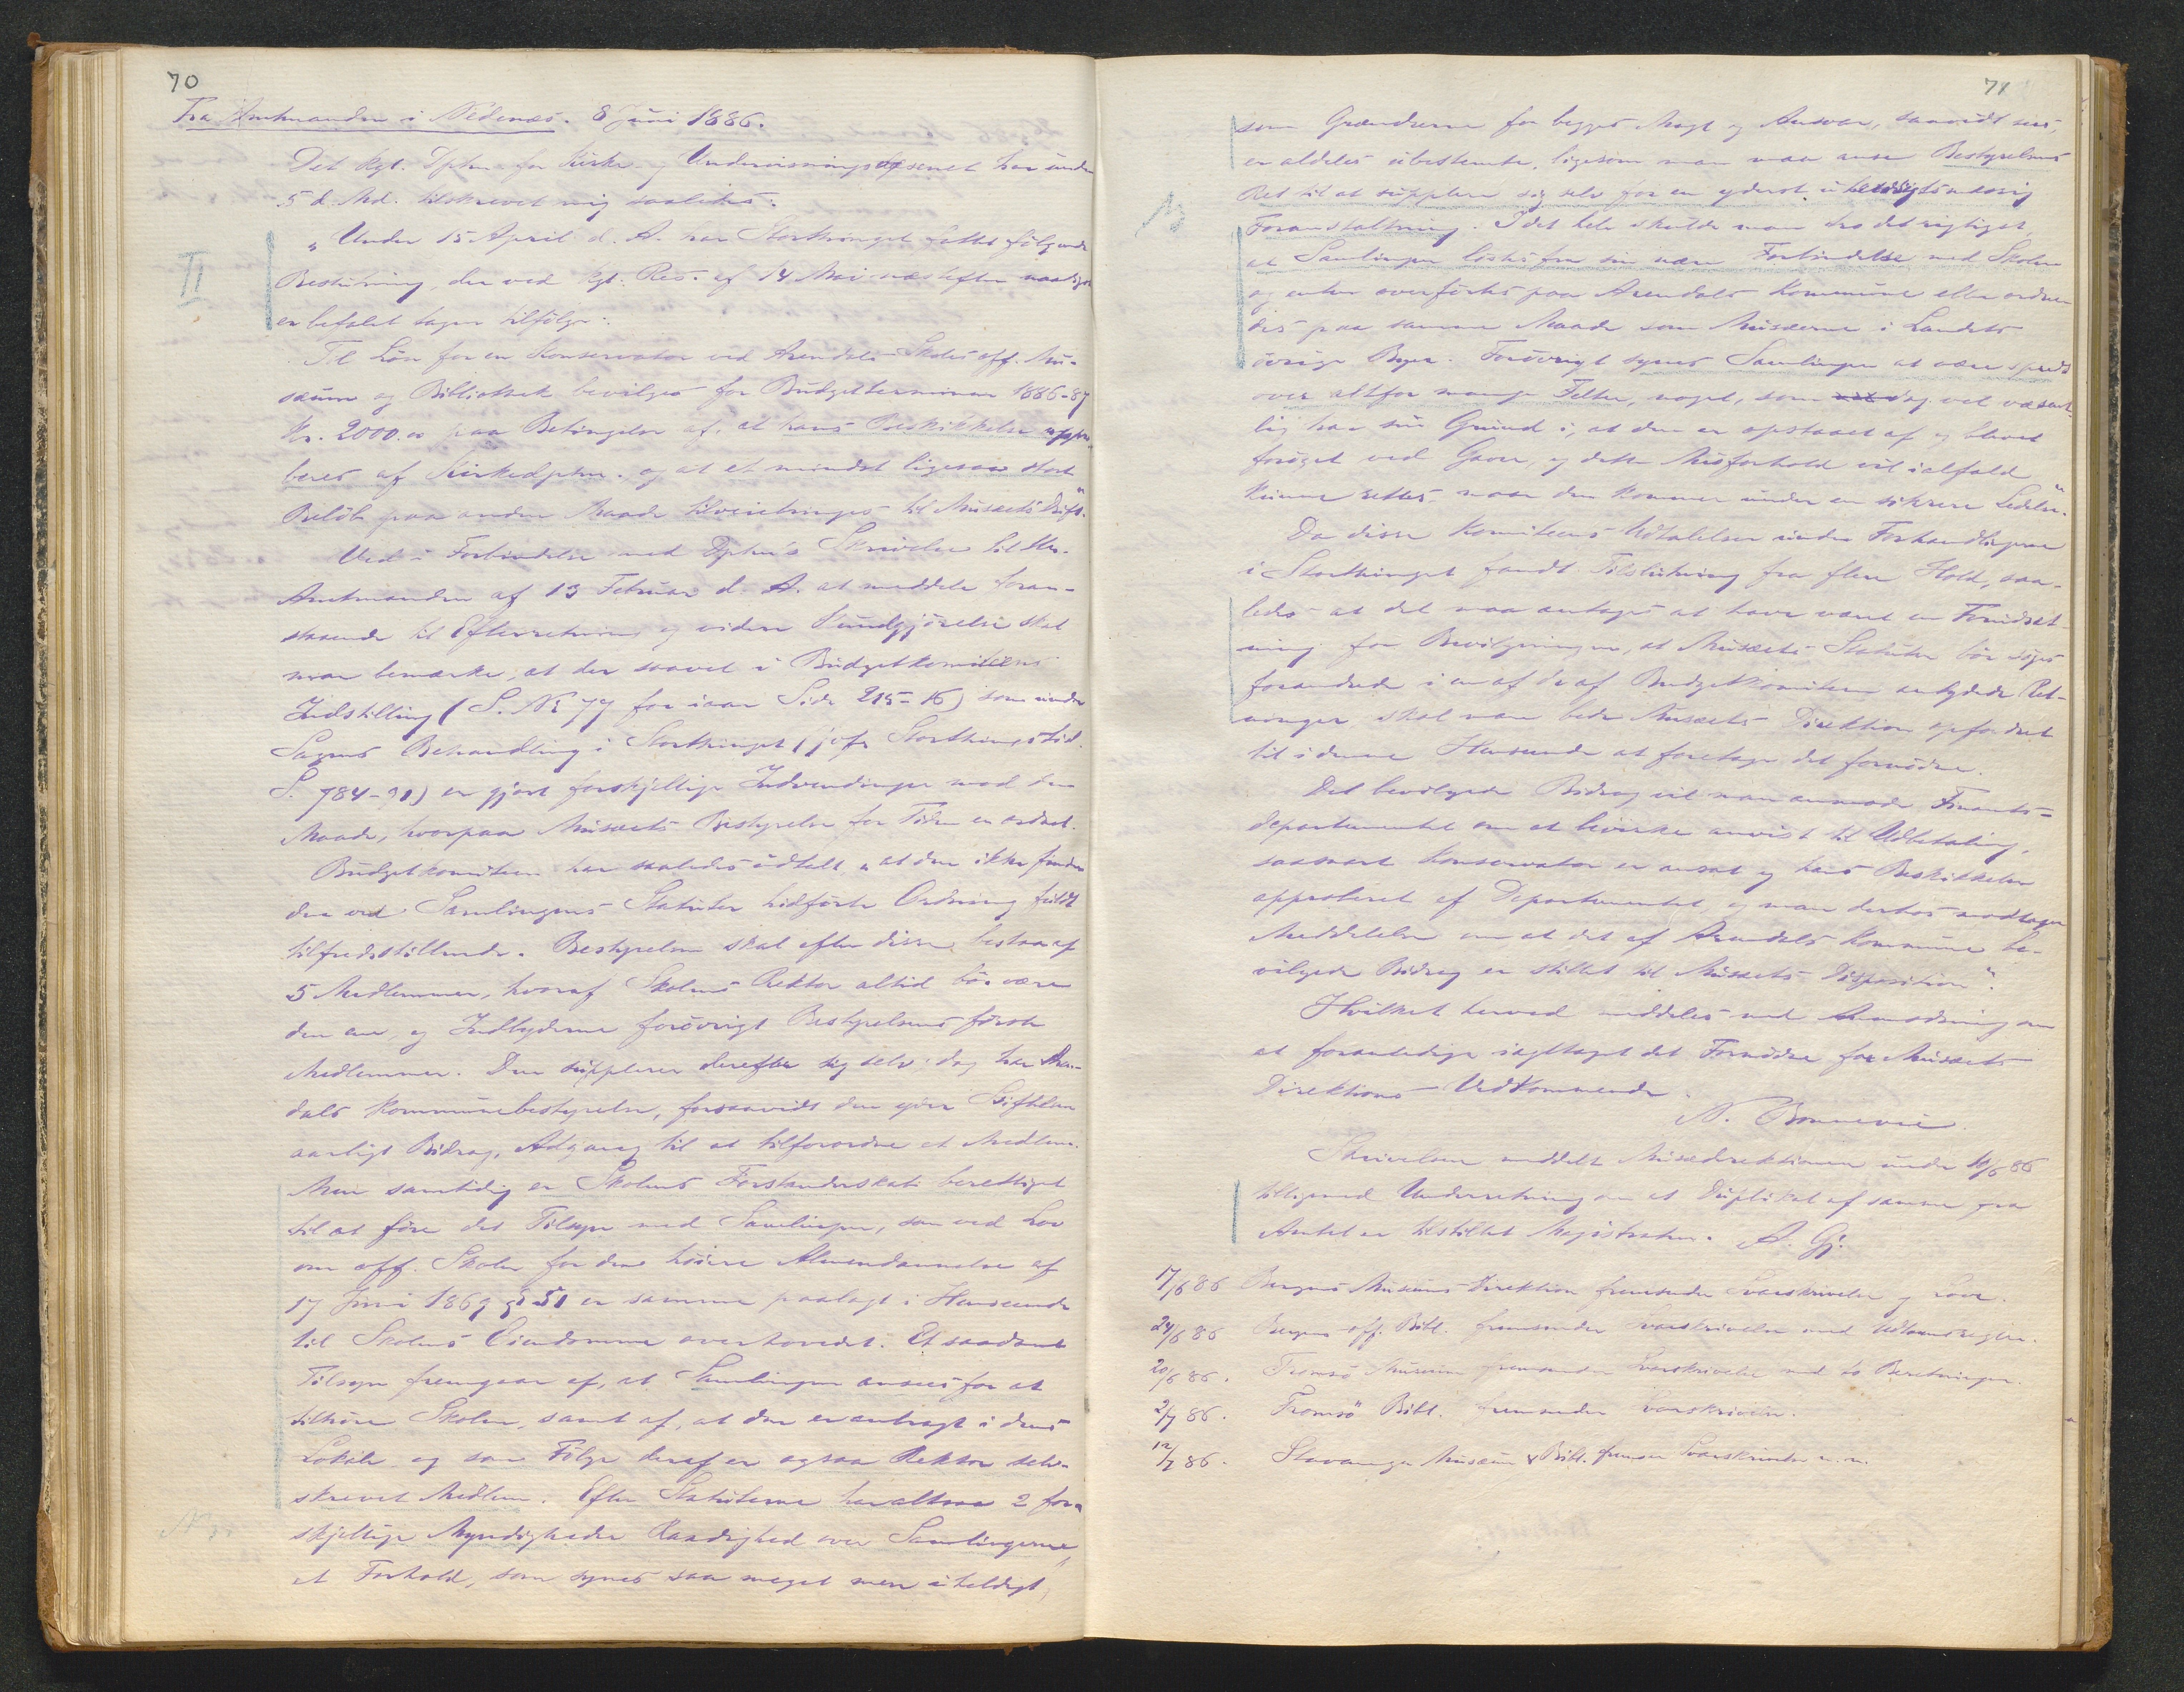 70
Fra Amtmanden i Nedenæs. 8 Juni 1886.
Det kgl. Dptm. for Kirke- og Undervisningsvæsenet har under
5 d. Md. tilskrevet mig saaledes:
II
"Under 15 April d. A. har Storthinget fattet følgende
Beslutning, der ved kgl. Res. af 14 Mai næstefter naadigst
er befalet tagen tilfølge:
Til Løn for en Konservator ved Arendals Skoles off. Mu-
sæum og Bibliothek bevilges for Budgetterminen 1886-87
Kr. 2000.00 paa Betingelse af, at hans Beskikkelse appro-
beres af Kirkedptm. og at et mindst ligesaa stort
Beløb paa anden Maade tilveiebringes til Musæets Drift."
Ved i Forbindelse med Dptm's Skrivelse til Hr.
Amtmanden af 13 Februar d. A. at meddele foran-
staaende til Efterretning og videre Kundgjørelse skal
man bemærke, at der saavel i Budgetkomiteens
Indstilling (S. No 77 for iaar Side 215-16) som under
Sagens Behandling i Storthinget (jofr Storthingstid.
S. 784-91) er gjort forskjellige Indvendinger mod den
Maade, hvorpaa Musæets Bestyrelse for Tiden er ordnet.
Budgetkomiteen har saaledes udtalt, "at den ikke finder
den ved Samlingens Statuter hidførte Ordning fuldt
tilfredsstillende. Bestyrelsen skal efter disse bestaa af
5 Medlemmer, hvoraf Skolens Rektor altid bør være
den ene og Indbyderne forøvrigt Bestyrelsens første
Medlemmer. Den supplerer derefter sig selv, dog har Aren-
dals Kommunebestyrelse, forsaavidt den yder Stiftelsen
aarligt Bidrag, Adgang til at tilforordne et Medlem.
Men samtidig er Skolens Forstanderskab berettiget
til at føre det Tilsyn med Samlingen, som ved Lov
om off. Skoler for den høiere Almendannelse af
17 Juni 1869 § 51 er samme paalagt i Henseende
til Skolens Eiendomme overhovedet. Et saadant
Tilsyn fremgaar af, at Samlingen ansees for at
tilhøre Skolen, samt af, at den er anbragt i dens
Lokale og som Følge deraf er ogsaa Rektor selv-
skrevet Medlem. Efter Statuterne har altsaa 2 for-
skjellige Myndigheder Raadighed over Samlingerne,
et Forhold, som synes saa meget mere uheldigt,
71
som Grændserne for begges Magt og Ansvar, saavidt sees,
er aldeles ubestemte, ligesom man maa anse Bestyrelsens
Ret til at supplere sig selv for en yderst uhensigtsmæssig
Foranstaltning. I det hele skulde man tro det rigtigst,
at Samlingen løstes fra sin nære Forbindelse med Skolen
og enten overførtes paa Arendals Kommune eller ordne-
des paa samme Maade som Musæerne i Landets
øvrige Byer. Forøvrigt synes Samlingen at være spredt
over altfor mange Felter, noget, som dog vel væsent-
lig har sin Grund i, at den er opstaaet af og blevet
forøget ved Gaver, og dette Misforhold vil ialfald
kunne rettes, naar den kommer under en sikrere Ledelse."
Da disse Komiteens Udtalelser under Forhandlingerne
i Storthinget fandt Tilslutning fra flere Hold, saa-
ledes at det maa antages at have været en Forudsæt-
ning for Bevilgningen, at Musæets Statuter bør søges
forandrede i en af de af Budgetkomiteen antydede Ret-
ninger, skal man bede Musæets Direktion opfordret
til i denne Henseende at foretage det fornødne.
Det bevilgede Bidrag vil man anmode Finants-
departementet om at bevirke anvist til Udbetaling,
saasnart Konservator er ansat og hans Beskikkelse
approberet af Departementet, og man derhos modtager
Meddelelse om, at det af Arendals Kommune be-
vilgede Bidrag er stillet til Musæets Disposition".
Hvilket herved meddeles med Anmodning om
at foranledige iagttaget det Fornødne for Musæets
Direktions Vedkommende.
N. Bonnevie.
Skrivelsen meddelt Musædirektionen under 10/6 86
tilligemed Underretning om at Duplikat af samme fra
Amtet er tilstillet Magistraten. A. Gj.
17/6 86 Bergens Musæums Direktion fremsender Svarskrivelse og Love.
24/6 86 Bergens off. Bibl. fremsender Svarskrivelse med Udlaansregler.
29/6 86. Tromsø Musæum fremsender Svarskrivelse med to Beretninger.
2/7 86. Tromsø Bibl. fremsender Svarskrivelse.
12/7 86. Stavanger Musæum & Bibl. fremsen Svarskrivelse m. m.